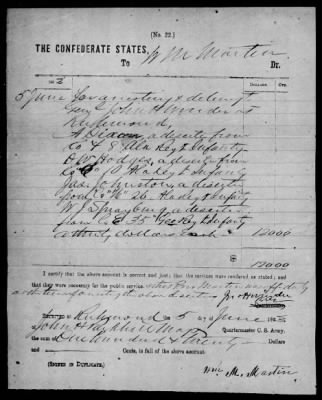 (No. 22.)
THE CONFEDERATE STATES,
To Wm Martin Dr.
186
DOLLARS. CTS.
5 June For arresting & delivering
John H Winder at
Richmond
A Dixon, a deserter from
Co F 8 Ala Regt Infantry
W Hodges, a deserter from
Regt Infantry
Jas Johnston, a deserter
from 26 Regt Infty
W Spraybery, a deserter
from Co E 35 Geo Regt Infantry
at thirty dollars Each 120 00
120 00
I certify that the above account is correct and just; that the services were rendered as stated; and
that they were necessary for the public service
Jno H Winder
RECEIVED at Richmond 5 of June 186
John H Parkhill Maj Quartermaster C. S. Army.
the sum of One hundred & twenty Dollars
and Cents, in full of the above account.
(SIGNED IN DUPLICATE.)
Wm. M. Martin